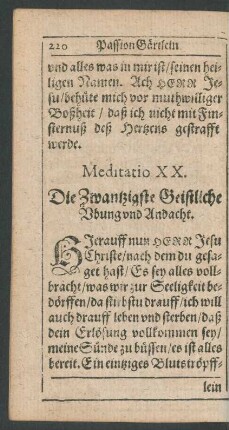 220 Passion Gärtlein
vnd alles was in mir ist/seinen hei-
ligen Namen. Ach HERR Je-
su/behüte mich vor muthwilliger
Boßheit / daß ich nicht mit Fin-
sternuß deß Hertzens gestrafft
werde.
Meditatio XX.
Die Zwantzigste Geistliche
Vbung vnd Andacht.
HIerauff nun HERR Jesu
Christe/nach dem du gesa-
get hast/Es sey alles voll-
bracht/was wir zur Seeligkeit be-
dörffen/da stirbstu drauff/ich will
auch drauff leben vnd sterben/daß
dein Erlösung vollkommen sey/
meine Sünde zu büssen/es ist alles
bereit. Ein eintziges Blutströpff-
lein